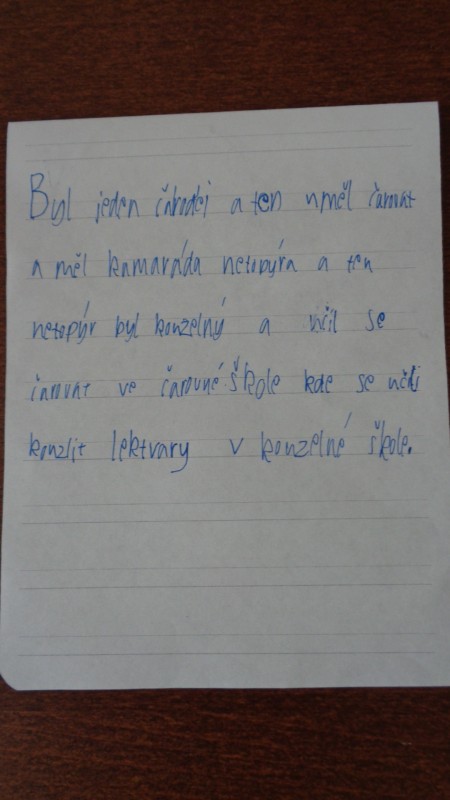 Byl jeden čaroděj a ten uměl čarovat
a měl kamaráda netopýra a ten
netopýr byl kouzelný a učil se
čarovat ve čarovné škole kde se učili
kouzlit lektvary v kouzelné škole.